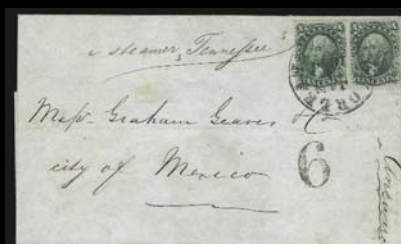 steamer Tennessee
ORLE
Messr. Graham Geaves &
city of Mexico
6